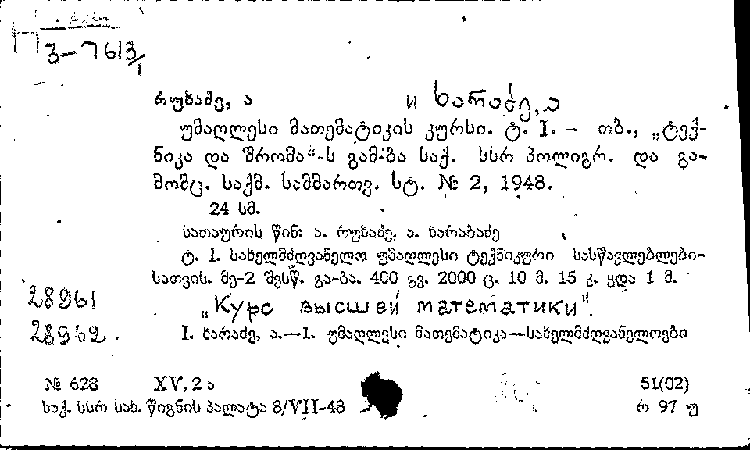 3-7613/1
რუხაძე, ა и ხარაძე, ა
უმაღლესი მათემატიკის კურსი. ტ. I. – თბ., „ტექ-
ნიკა და შრომა“-ს გამ-ბა საქ. სსრ პოლიგრ. და გა-
მომც. საქმ. სამმართვ. სტ. № 2, 1948.
24 სმ.
სათაურის წინ: ა. რუხაძე, ა. ხარაბაძე
ტ. I. სახელმძღვანელო უმაღლესი ტექნიკური სასწავლებლები-
სათვის. მე-2 შესწ. გა-ბა. 400 გვ. 2000 ც. 10 მ. 15 კ. ყდა 1 მ.
28961 „Курс высшей математики“.
28962. I. ხარაძე, ა.—1. უმაღლესი მათემატიკა—სახელმძღვანელოები
№ 628 XV, 2ა 51(02)
საქ. სსრ სახ. წიგნის პალატა 8/VII-48 რ 97 უ